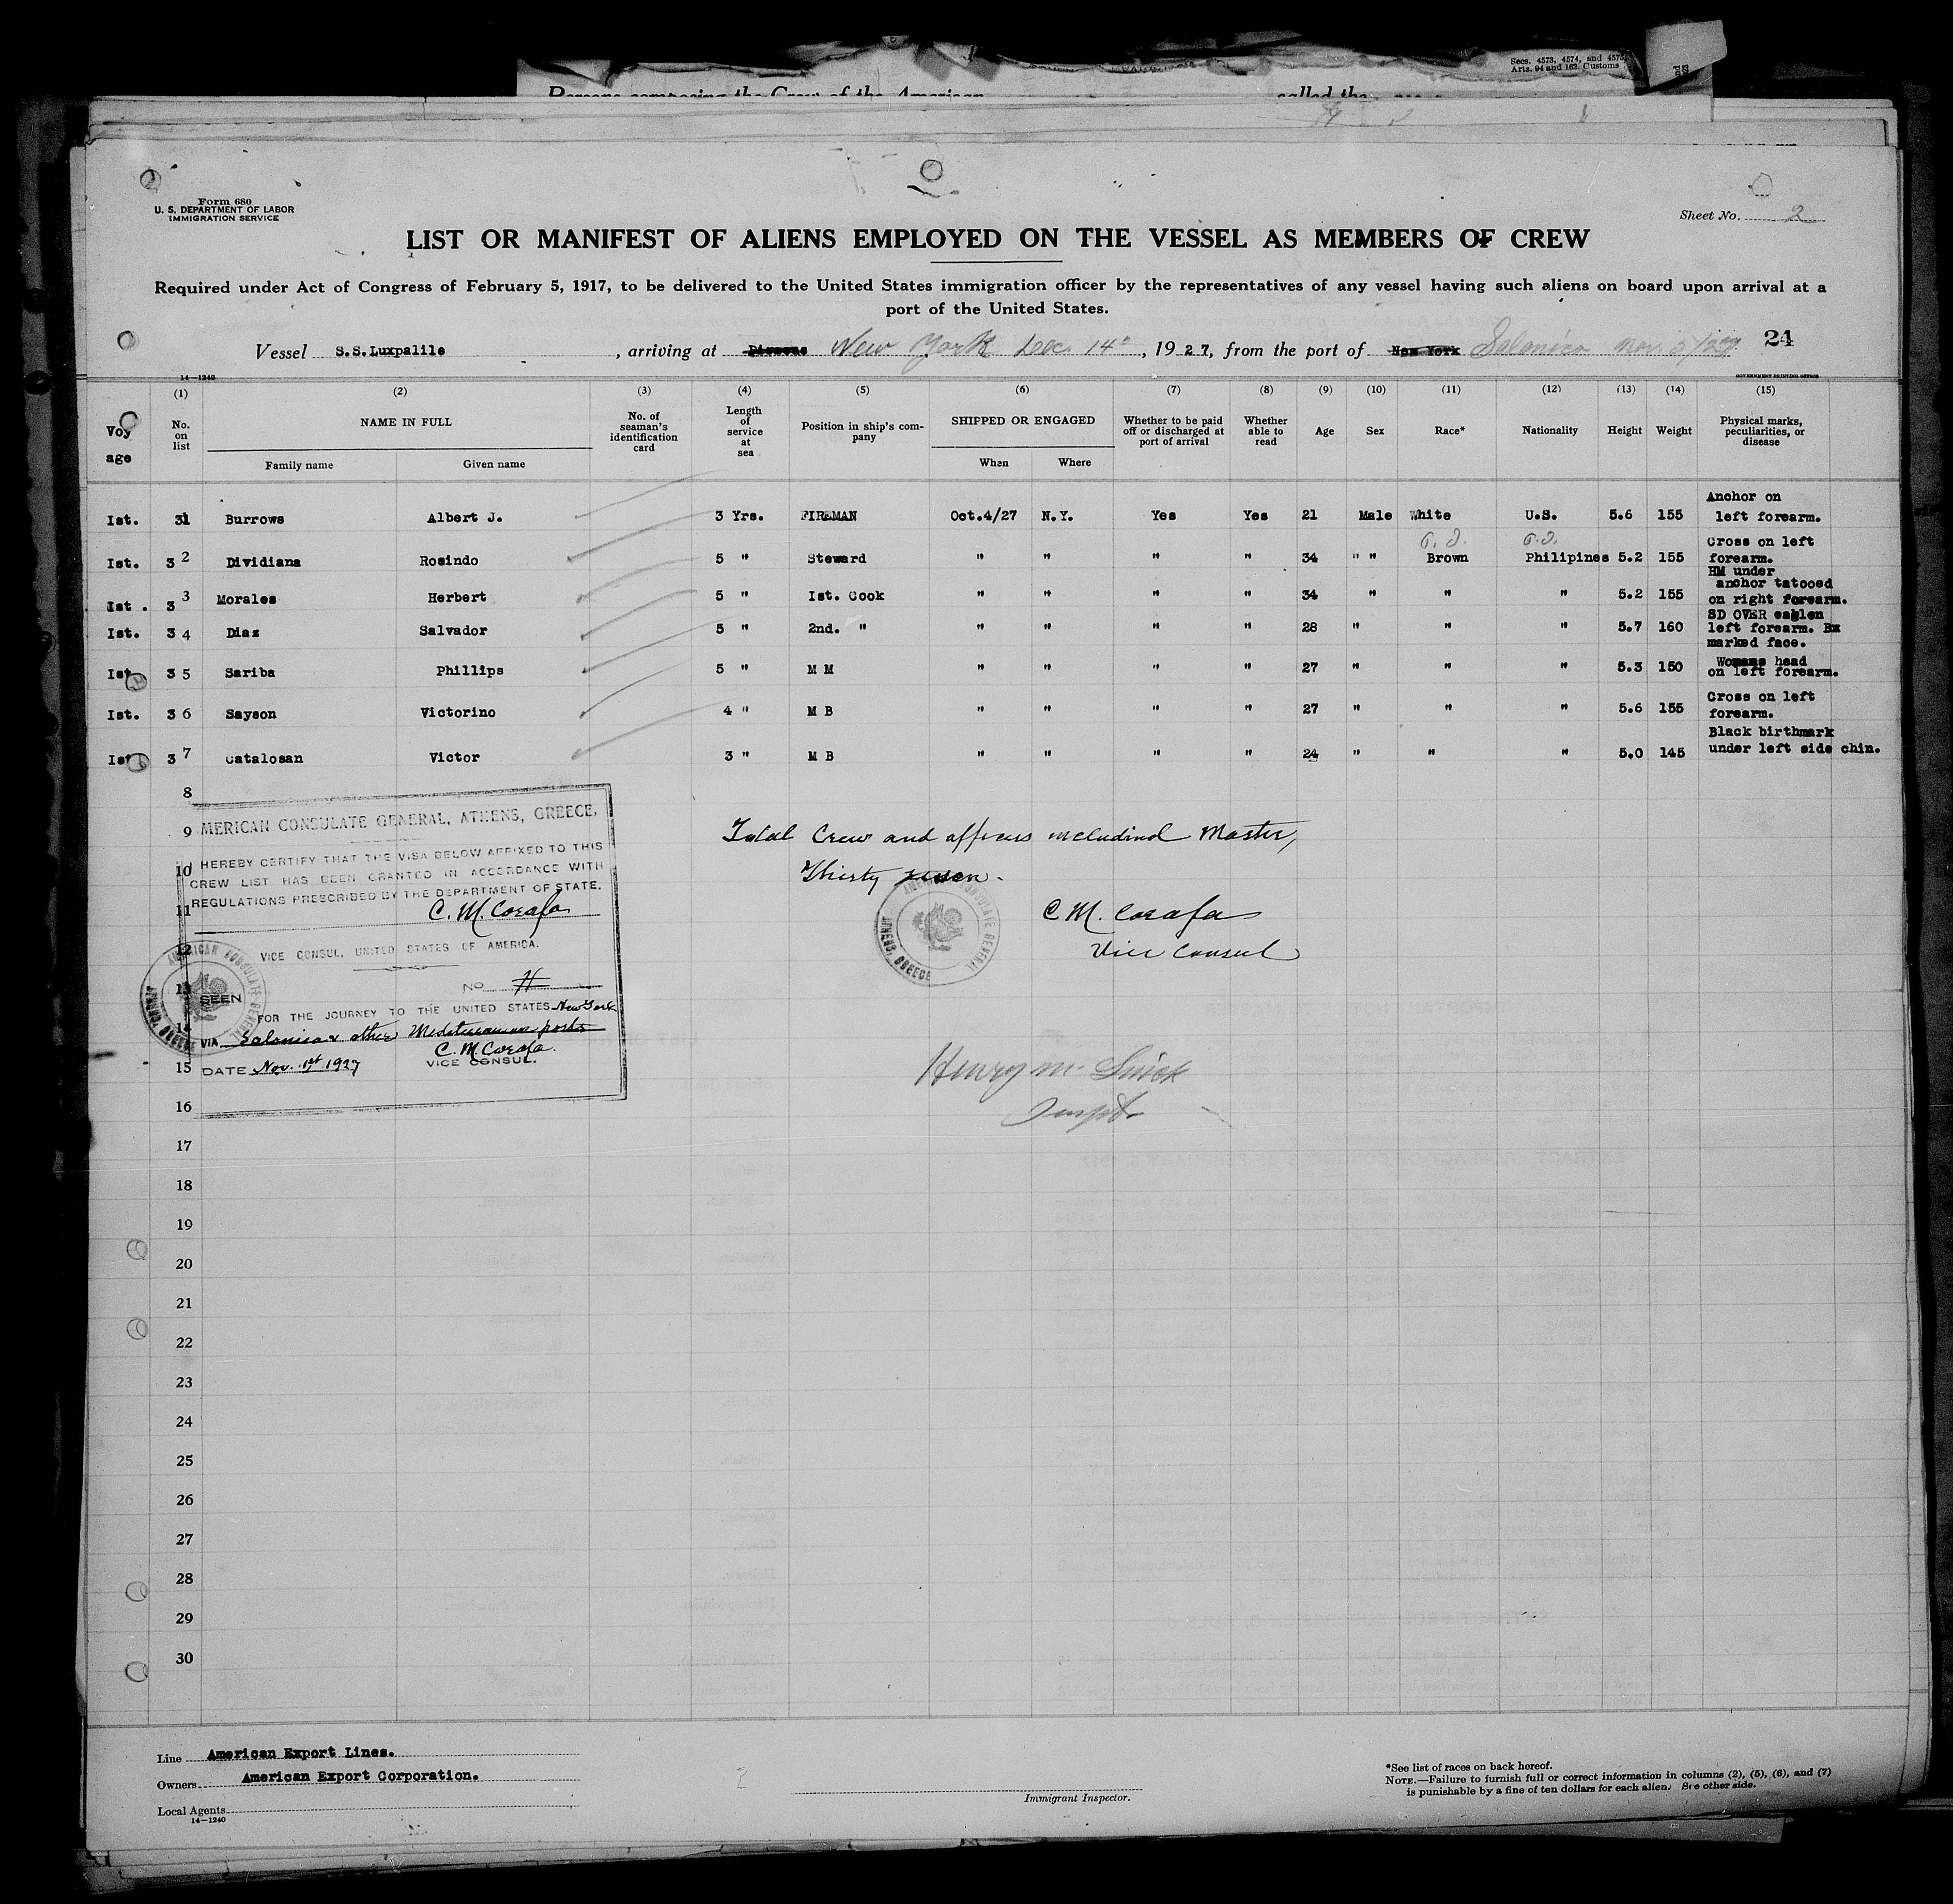 Secs. 4573, 4574, and 4575
Arts. 94 and 162. Customs
Persons composing the Crew of the American called the
Form 680
U. S. DEPARTMENT OF LABOR
IMMIGRATION SERVICE
Sheet No. 2
LIST OR MANIFEST OF ALIENS EMPLOYED ON THE VESSEL AS MEMBERS OF CREW
Required under Act of Congress of February 5, 1917, to be delivered to the United States immigration officer by the representatives of any vessel having such aliens on board upon arrival at a
port of the United States.
Vessel S.S.Luxpalile, arriving at New York Dec. 14, 1927, from the port of New York Salonica Nov. 24
14—1240
GOVERNMENT PRINTING OFFICE
(1) (2) (3) (4) (5) (6) (7) (8) (9) (10) (11) (12) (13) (14) (15)
Voyage No. on list NAME IN FULL Family name Given name No. of seaman's identification card Length of service at sea Position in ship's company SHIPPED OR ENGAGED When Where Whether to be paid off or discharged at port of arrival Whether able to read Age Sex Race* Nationality Height Weight Physical marks, peculiarities, or disease
Ist. 31 Burrows Albert J. 3 Yrs. FIREMAN Oct.4/27 N.Y. Yes Yes 21 Male White U.S. 5.6 155 Anchor on left forearm.
Ist. 32 Dividiana Rosindo 5 " Steward " " " " 34 " " Brown Philipines 5.2 155 Cross on left forearm.
Ist. 33 Morales Herbert 5 " Ist. Cook " " " " 34 " " " 5.2 155 HM under anchor tatooed on right forearm.
Ist. 34 Diaz Salvador 5 " 2nd. " " " " " 28 " " " 5.7 160 SD OVER eaglen left forearm. marked face.
Ist. 35 Sariba Phillips 5 " M M " " " " 27 " " " 5.3 150 Womans head on left forearm.
Ist. 36 Sayson Victorino 4 " M B " " " " 27 " " " 5.6 155 Cross on left forearm.
Ist. 37 Catalosan Victor 3 " M B " " " " 24 " " " 5.0 145 Black birthmark under left side chin.
8
9
10
11
12
13
14
15
16
17
18
19
20
21
22
23
24
25
26
27
28
29
30
MERICAN CONSULATE GENERAL, ATHENS, GREECE,
I HEREBY CERTIFY THAT THE VISA BELOW AFFIXED TO THIS
CREW LIST HAS BEEN GRANTED IN ACCORDANCE WITH
REGULATIONS PRESCRIBED BY THE DEPARTMENT OF STATE.
C. M. Corafa
VICE CONSUL, UNITED STATES OF AMERICA.
No
SEEN
FOR THE JOURNEY TO THE UNITED STATES New York
VIA Salonica & other Mediterranean ports
C. M. Corafa.
DATE Nov. 1st 1927 VICE CONSUL.
AMERICAN CONSULATE GENERAL
ATHENS, GREECE
Total Crew and officers includind Master,
Thirty seven.
AMERICAN CONSULATE GENERAL
ATHENS, GREECE
C. M. Corafa
Vice Consul
Henry M.
Inspt.
Line American Export Lines.
Owners American Export Corporation.
Local Agents
14—1240
2
Immigrant Inspector.
*See list of races on back hereof.
NOTE.—Failure to furnish full or correct information in columns (2), (5), (6), and (7)
is punishable by a fine of ten dollars for each alien. See other side.